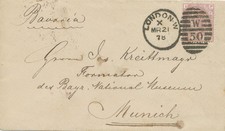 Bavaria
LONDON·W
X
MR 21
78
W
50
Herrn Jos. Kreittmayr
Formator
des Bayr. National Museums
Munich